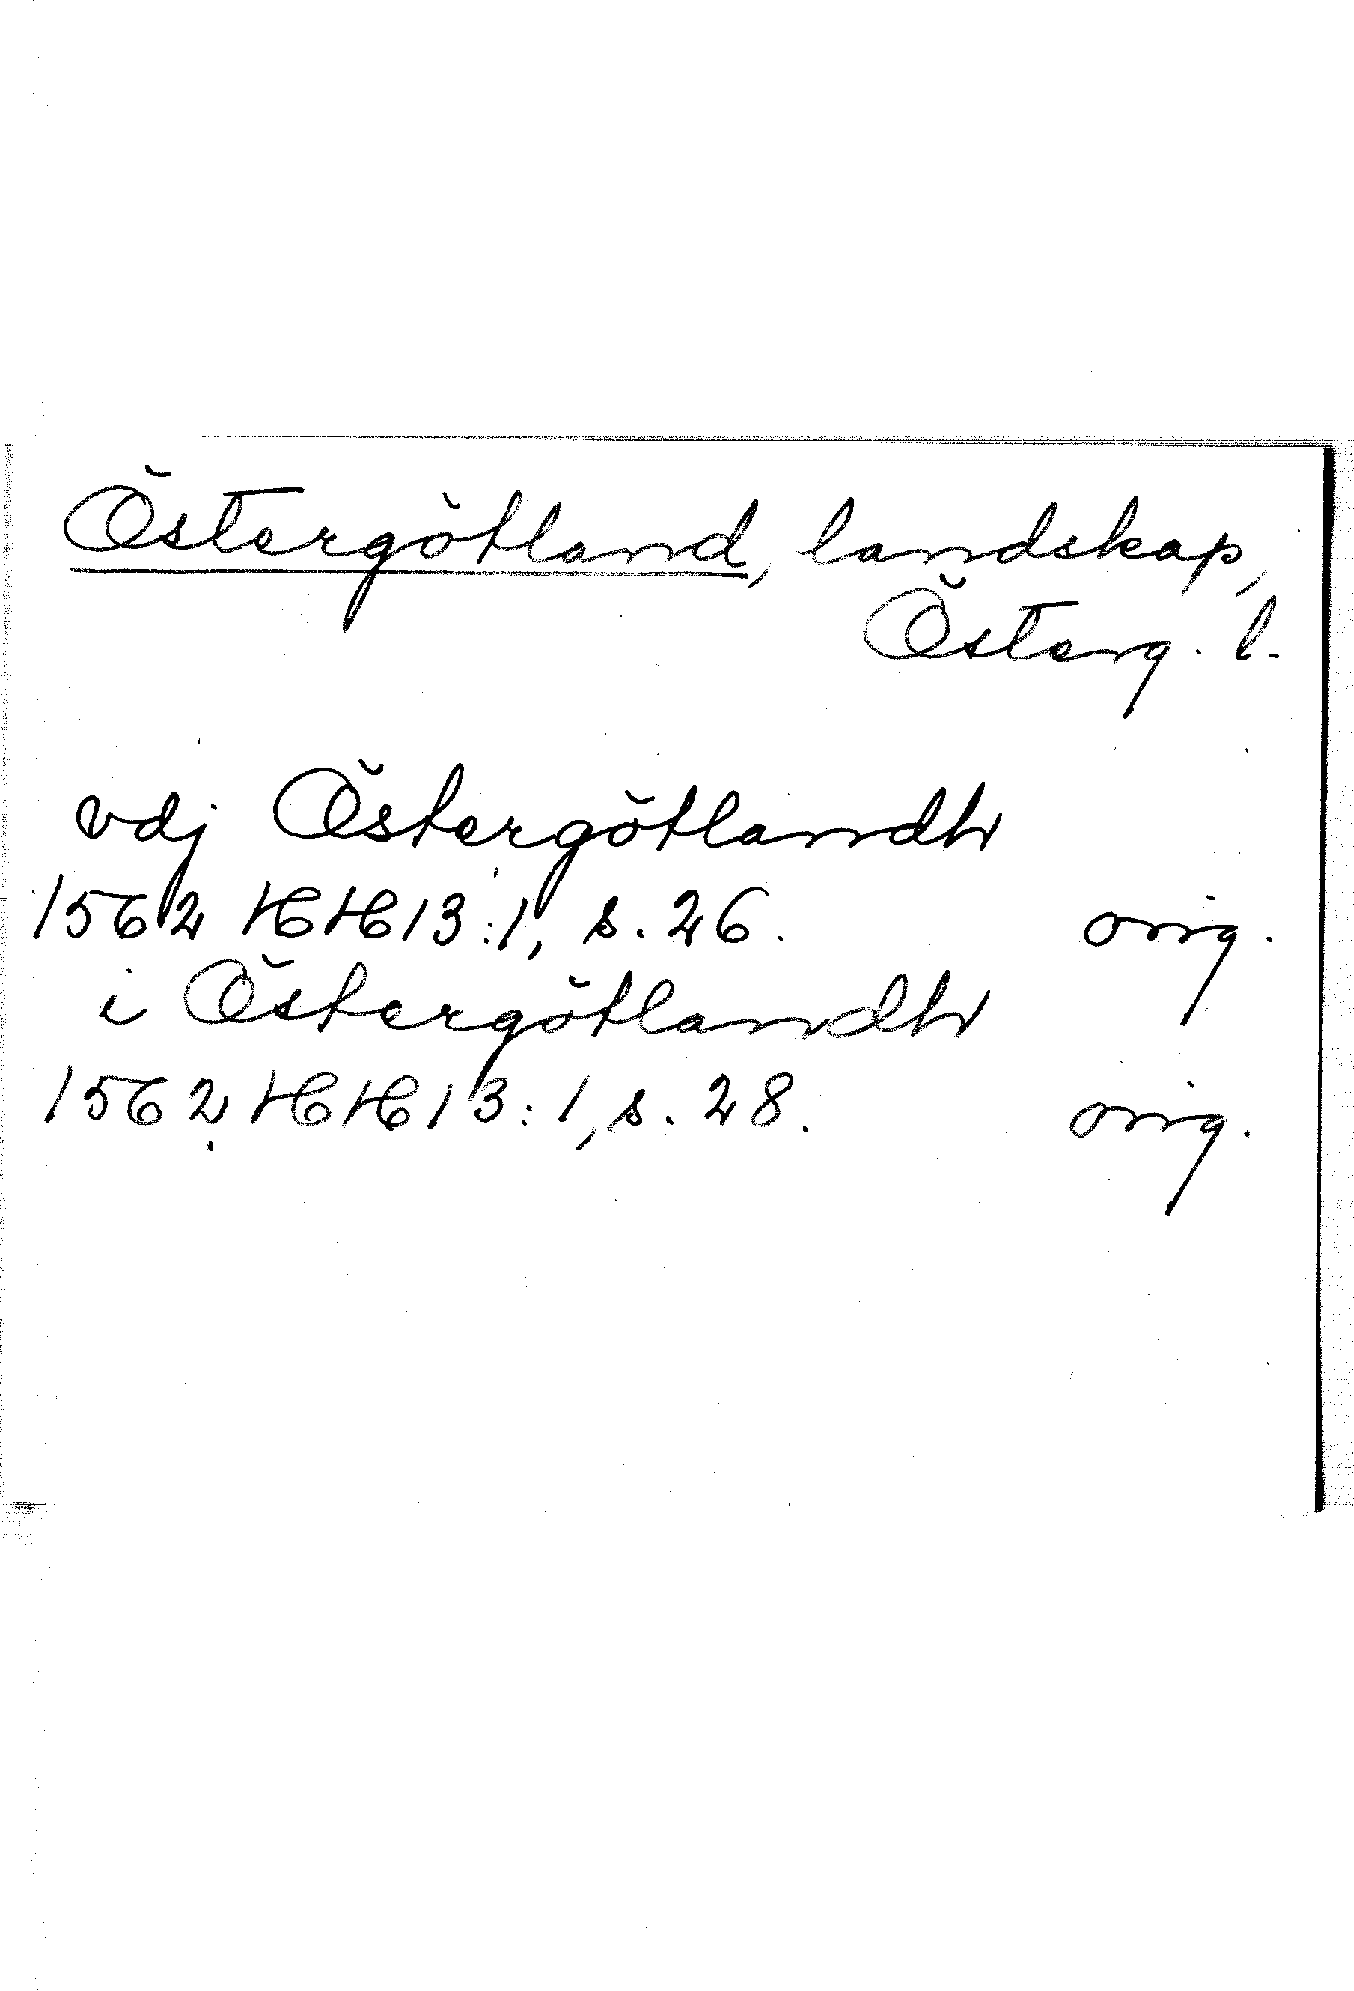 Östergötland, landskap,
Österg. l.
vdj Östergötlandh
1562 HH 13:1, s. 26. orig.
i Östergötlandh
1562 HH 13:1, s. 28. orig.